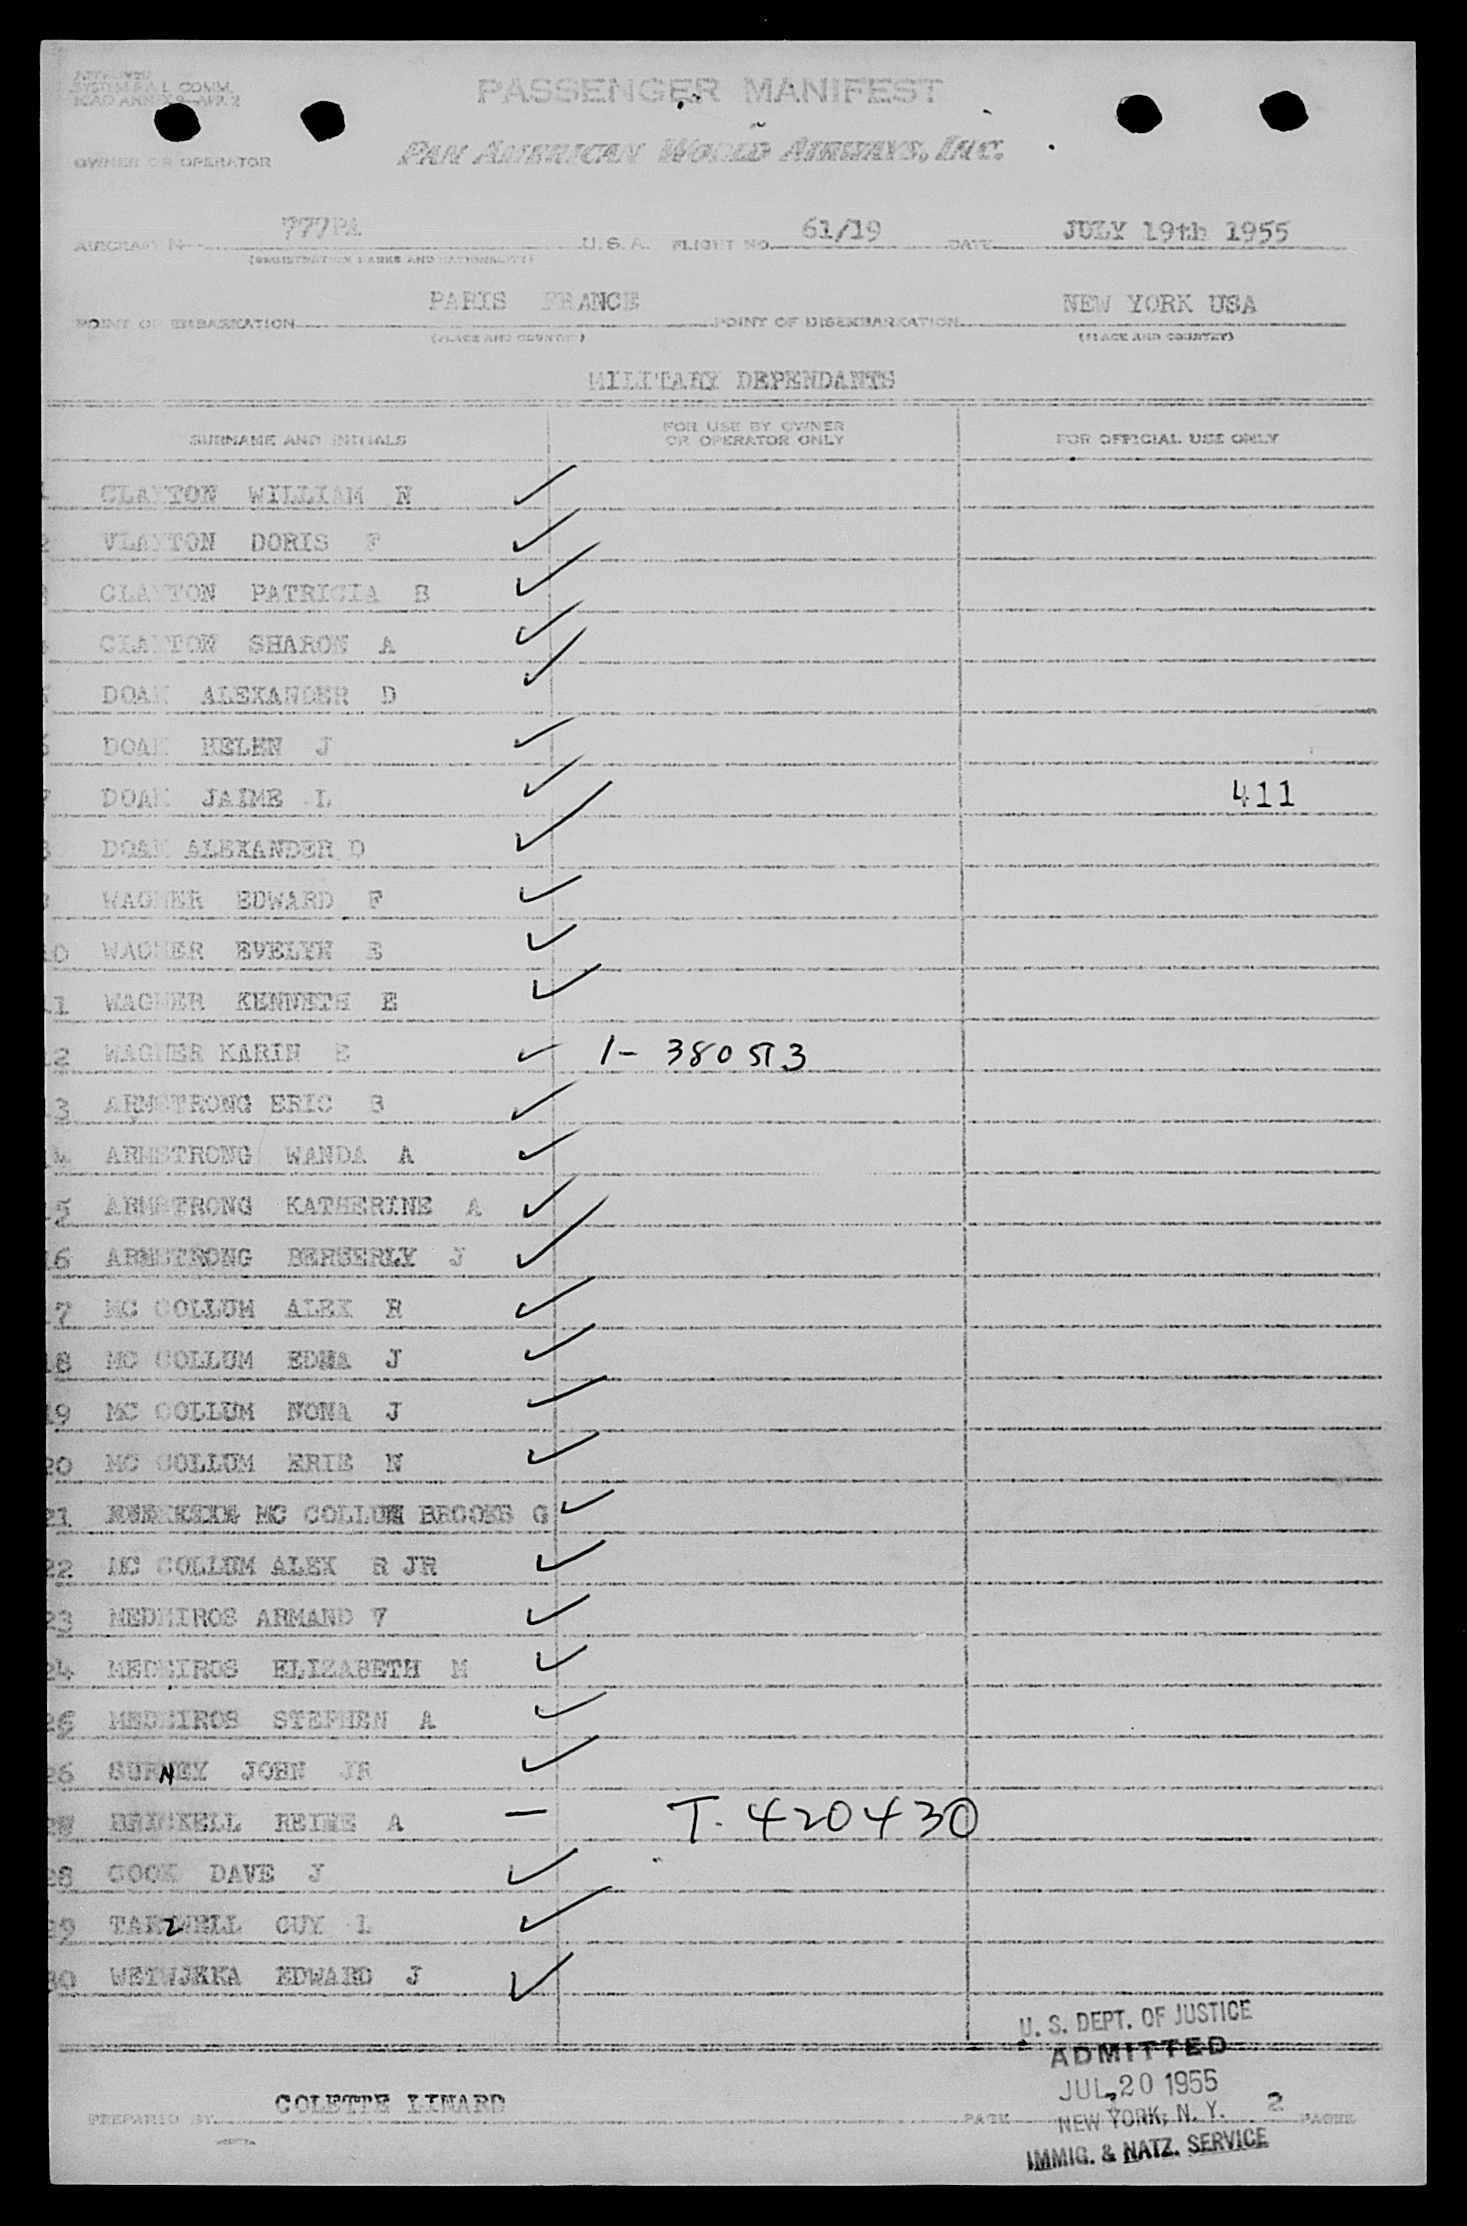 SYSTEM F.A.L. COMM.
ICAO ANNEX 9—APP. 2
PASSENGER MANIFEST
OWNER OR OPERATOR PAN AMERICAN WORLD AIRWAYS, INC.
AIRCRAFT N 777PA U.S.A. FLIGHT NO. 61/19 DATE JULY 19th 1955
(REGISTRATION MARKS AND NATIONALITY)
POINT OF EMBARKATION PARIS FRANCE POINT OF DISEMBARKATION NEW YORK USA
(PLACE AND COUNTRY) (PLACE AND COUNTRY)
MILITARY DEPENDANTS
SURNAME AND INITIALS FOR USE BY OWNER OR OPERATOR ONLY FOR OFFICIAL USE ONLY
CLAYTON WILLIAM N ✓
2 VLAYTON DORIS F ✓
3 CLAYTON PATRICIA S ✓
CLAYTON SHARON A ✓
5 DOAK ALEXANDER D ✓
6 DOAK HELEN J ✓
7 DOAK JAIME L ✓ 411
8 DOAK ALEXANDER D ✓
9 WAGNER EDWARD F ✓
10 WAGNER EVELYN E ✓
11 WAGNER KENNETH E ✓
12 WAGNER KARIN E ✓ 1- 380513
13 ARMSTRONG ERIC S ✓
14 ARMSTRONG WANDA A ✓
15 ARMSTRONG KATHERINE A ✓
16 ARMSTRONG BERBERLY J ✓
17 MC COLLUM ALEX R ✓
18 MC COLLUM EDNA J ✓
19 MC COLLUM NONA J ✓
20 MC COLLUM ERIE N ✓
21 MC COLLUM BROOKS G ✓
22 MC COLLUM ALEX R JR ✓
23 MEDEIROS ARMAND V ✓
24 MEDEIROS ELIZABETH M ✓
25 MEDEIROS STEPHEN A ✓
26 GURNEY JOHN JR ✓
27 BRACKELL REINE A — T. 420430
28 COOK DAVE J ✓
29 TARZWELL GUY L ✓
30 WETWJEKA EDWARD J ✓
U. S. DEPT. OF JUSTICE
ADMITTED
JUL 20 1955
PREPARED BY COLETTE LINARD PAGE 2 PAGES
NEW YORK, N. Y.
IMMIG. & NATZ. SERVICE